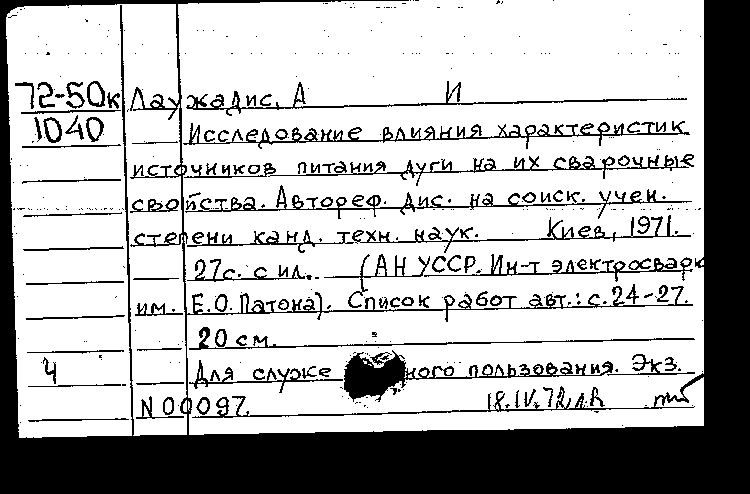 72-50к Лаужадис, А И
1040 Исследование влияния характеристик
источников питания дуги на их сварочные
свойства. Автореф. дис. на соиск. учен.
степени канд. техн. наук. Киев, 1971.
27с. с ил. (АН УССР. Ин-т электросварк
им. Е.О. Патона). Список работ авт.: с.24-27.
20 см.
Ч Для служе ного пользования. Экз.
N 00097. 18.IV.72